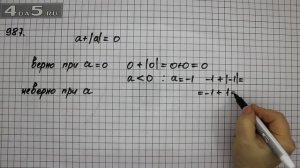 4OД5.RU
987.
a+|a| = 0
верно при a = 0 0+|0| = 0+0 = 0
a < 0 : a = -1 -1+|-1| =
неверно при a = -1 + 1 =